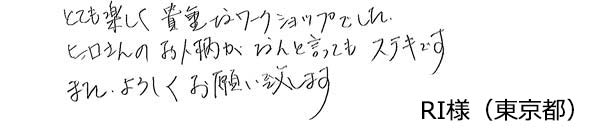 とても楽しく貴重なワークショップでした。
ヒロさんのお人柄がなんと言ってもステキです
また、よろしくお願い致します
RI様（東京都）